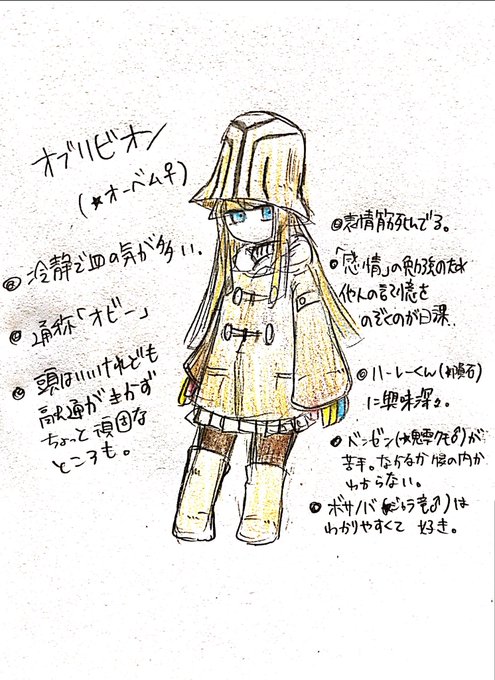 オブリビオン
(★オーベム♀)
冷静で血の気が多い.
通称「オビー」
頭はいいけれども
融通がきかず
ちょっと頑固な
ところも。
表情筋死んでる。
「感情」の勉強のため
他人の記憶を
のぞくのが日課.
ハーレーくん(
に興味深々。
ベンゼン(
苦手。なかなか腹の内が
わからない。
ボサノバ(
わかりやすくて 好き。